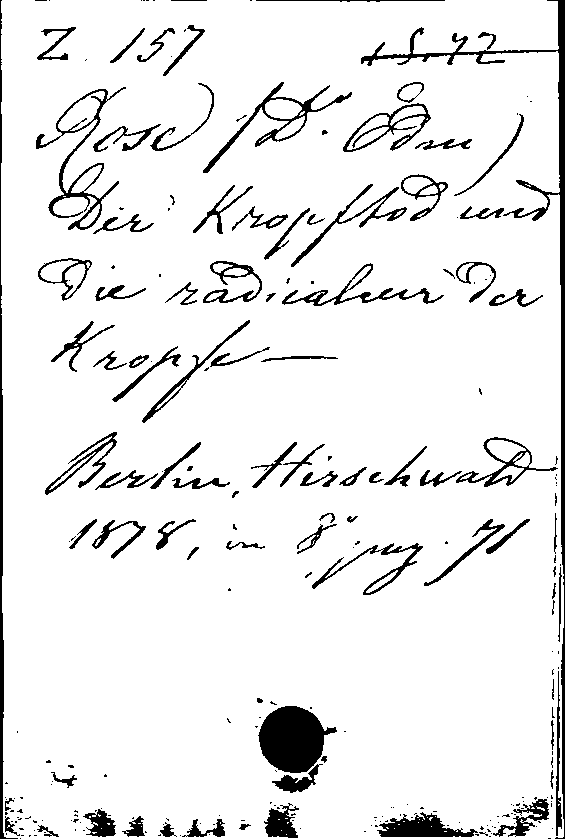 Z 157 15.42
Rose (Dr. Edm)
Der Kropftod und
die radicalcur der
Kropfe —
Berlin, Hirschwald
1878, in 8° pag. 71